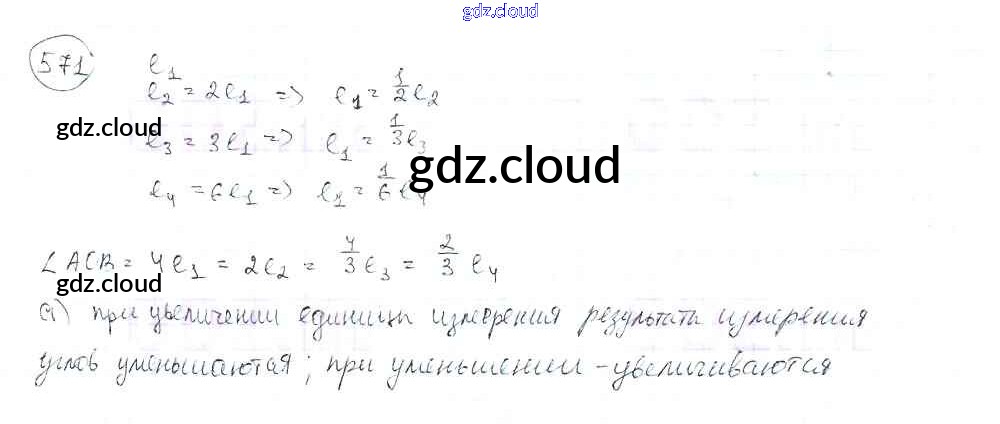 gdz.cloud
571
e₁
e₂ = 2e₁ => e₁ = 1/2 e₂
gdz.cloud
e₃ = 3e₁ => e₁ = 1/3 e₃
gdz.cloud
e₄ = 6e₁ => e₁ = 1/6 e₄
∠ACB = 4e₁ = 2e₂ = 4/3 e₃ = 2/3 e₄
gdz.cloud
а) при увеличении единицы измерения результаты измерения
углов уменьшаются; при уменьшении – увеличиваются